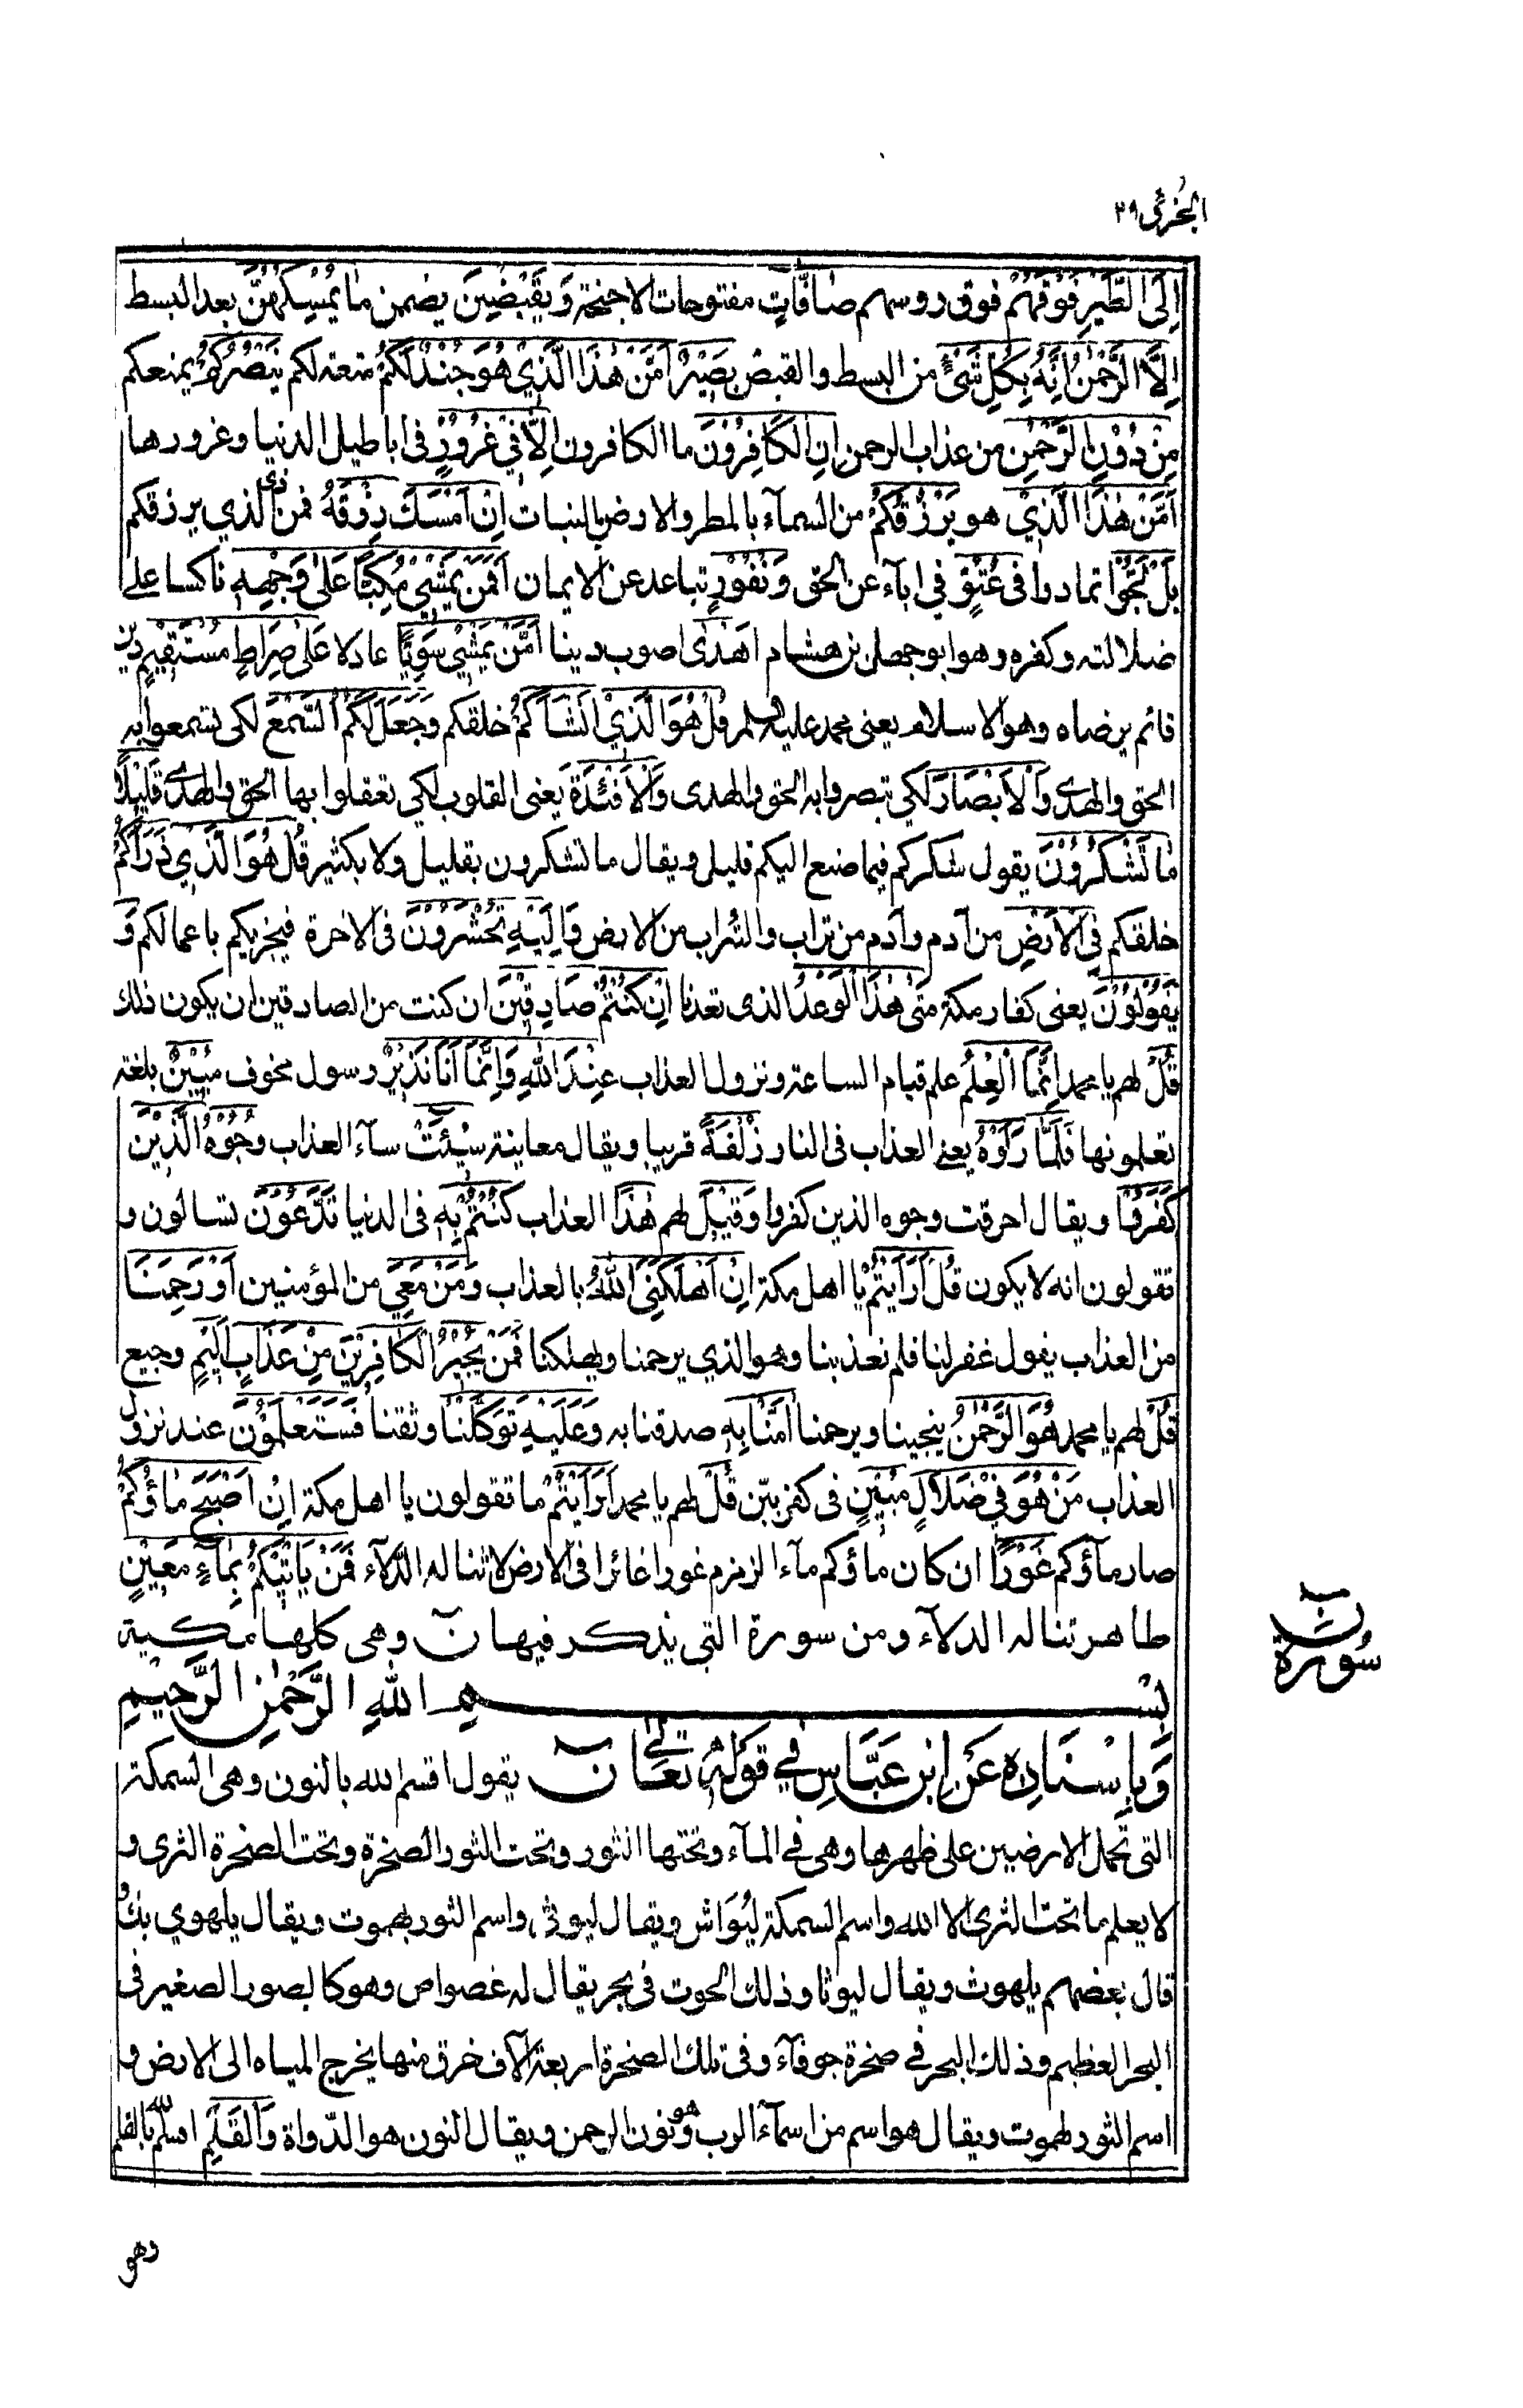 الجزئی ۲۹
اِلَى الطَّيْرِ فَوْقَهُمْ فوق روسهم صٰافّٰاتٍ مفتوحات الاجنحة وَيَقْبِضْنَ يضممن مٰا يُمْسِكُهُنَّ بعد البسط
اِلَّا الرَّحْمٰنُ اِنَّهُ بِكُلِّ شَيْءٍ من البسط والقبض بَصِيْرٌ اَمَّنْ هٰذَا الَّذِيْ هُوَ جُنْدٌ لَكُمْ منعة لكم يَنْصُرُكُمْ يمنعكم
مِنْ دُوْنِ الرَّحْمٰنِ من عذاب الرحمن اِنِ الْكَافِرُوْنَ ما الكافرون اِلَّا فِيْ غُرُوْرٍ فى اباطيل الدنيا وغرورها
اَمَّنْ هٰذَا الَّذِيْ هو يَرْزُقُكُمْ من السمآء بالمطر والارض بالنبات اِنْ اَمْسَكَ رِزْقَهُ فمن ذى الذي يرزقكم
بَلْ لَجُّوْا تمادوا فى عُتُوٍّ فى اباء عن الحق وَنُفُوْرٍ تباعد عن الايمان اَفَمَنْ يَمْشِيْ مُكِبًّا عَلٰى وَجْهِهِ ناكسا على
ضلالته وكفره وهو ابو جهل بن هشام اَهْدٰى اصوب دينا اَمَّنْ يَمْشِيْ سَوِيًّا عادلا عَلٰى صِرَاطٍ مُسْتَقِيْمٍ دين
قائم يرضاه وهو الاسلام يعنى محمد عليه السلم قُلْ هُوَ الَّذِيْ اَنْشَاَكُمْ خلقكم وَجَعَلَ لَكُمُ السَّمْعَ لكى تسمعوا به
الحق والهدى وَالْاَبْصَارَ لكي تبصروا به الحق والهدى وَالْاَفْئِدَةَ يعنى القلوب لكي تعقلوا بها الحق والهدى قَلِيْلًا
مٰا تَشْكُرُوْنَ يقول شكركم فيما صنع اليكم قليل ويقال ما تشكرون بقليل ولا بكثير قُلْ هُوَ الَّذِيْ ذَرَاَكُمْ
خلقكم فِي الْاَرْضِ من آدم وآدم من تراب والتراب من الارض وَاِلَيْهِ تُحْشَرُوْنَ فى الاخرة فيجزيكم باعمالكم وَ
يَقُوْلُوْنَ يعنى كفار مكة مَتٰى هٰذَا الْوَعْدُ الذى تعدنا اِنْ كُنْتُمْ صَادِقِيْنَ ان كنت من الصادقين ان يكون ذلك
قُلْ لهم يا محمد اِنَّمَا الْعِلْمُ علم قيام الساعة ونزول العذاب عِنْدَ اللّٰهِ وَاِنَّمَا اَنَا نَذِيْرٌ رسول مخوف مُبِيْنٌ بلغة
تعلمونها فَلَمَّا رَاَوْهُ يعنى العذاب فى النار زُلْفَةً قريبا ويقال معاينة سِيْئَتْ سآء العذاب وُجُوْهُ الَّذِيْنَ
كَفَرُوْا ويقال احرقت وجوه الذين كفروا وَقِيْلَ لهم هٰذَا العذاب كُنْتُمْ بِهِ فى الدنيا تَدَّعُوْنَ تسالون و
تقولون انه لا يكون قُلْ اَرَاَيْتُمْ يا اهل مكة اِنْ اَهْلَكَنِيَ اللّٰهُ بالعذاب وَمَنْ مَعِيَ من المؤمنين اَوْ رَحِمَنَا
من العذاب يقول غفر لنا فلم تعذبنا وهو الذي يرحمنا ويهلكنا فَمَنْ يُجِيْرُ الْكَافِرِيْنَ مِنْ عَذَابٍ اَلِيْمٍ وجيع
قُلْ لهم يا محمد هُوَ الرَّحْمٰنُ ينجينا ويرحمنا اٰمَنَّا بِهِ صدقنا به وَعَلَيْهِ تَوَكَّلْنَا وثقنا فَسَتَعْلَمُوْنَ عند نزول
العذاب مَنْ هُوَ فِيْ ضَلَالٍ مُبِيْنٍ فى كفر بيّن قُلْ لهم يا محمد اَرَاَيْتُمْ ما تقولون يا اهل مكة اِنْ اَصْبَحَ مٰاؤُكُمْ
صار مآؤكم غَوْرًا ان كان ماؤكم مآء الزمزم غورا غائرا فى الارض لا تناله الدّلآء فَمَنْ يَاْتِيْكُمْ بِمٰآءٍ مَعِيْنٍ
طاهر تناله الدلآء ومن سورة التى يذكر فيها نٓ وهى كلها مكية
سورة نٓ
بِسْمِ اللّٰهِ الرَّحْمٰنِ الرَّحِيْمِ
وَبِاِسْنَادِهِ عَنْ اِبْنِ عَبَّاسٍ فِي قَوْلِهِ تَعَالٰى نٓ يقول اقسم الله بالنون وهى السمكة
التى تحمل الارضين على ظهرها وهى فى المآء وتحتها الثور وتحت الثور الصخرة وتحت الصخرة الثرى و
لا يعلم ما تحت الثرى الا الله واسم السمكة لِيُوَاش ويقال ليوثى، واسم الثور بهموت ويقال يلهوي
قال بعضهم يلهوث ويقال ليوثا وذلك الحوت فى بحر يقال له غصواص وهو كالصور الصغير فى
البحر العظيم وذلك البحر فى صخرة جوفآء وفى تلك الصخرة اربعة آلاف خرق منها يخرج المياه الى الارض و
اسم الثور لهموت ويقال هو اسم من اسمآء الرب وهو نون الرحمن ويقال النون هو الدّواة وَالْقَلَمِ اقسم الله بالقلم
وهو